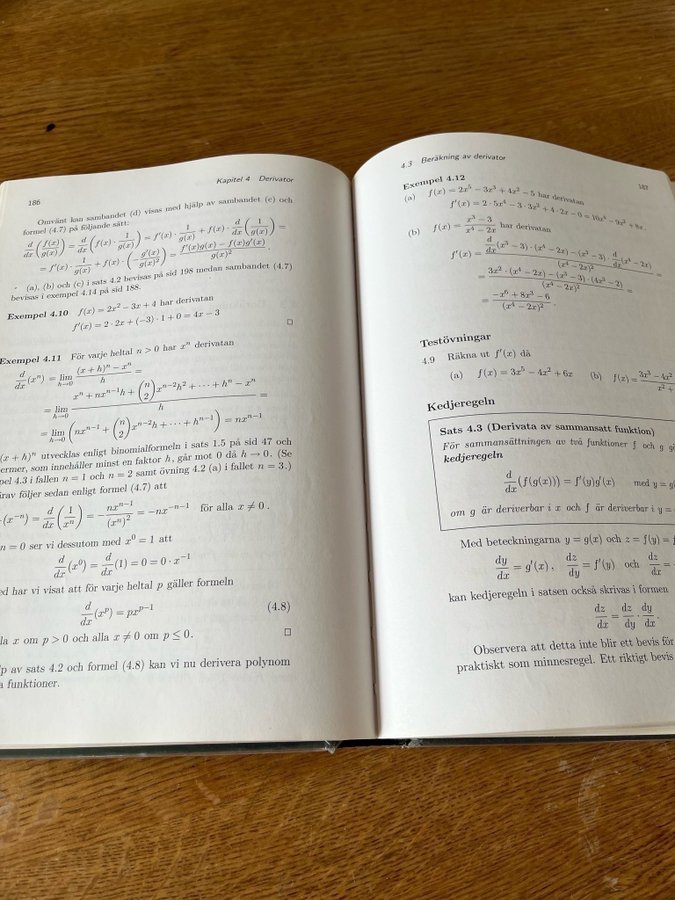 186
Kapitel 4 Derivator
Omvänt kan sambandet (d) visas med hjälp av sambandet (c) och
formel (4.7) på följande sätt:
d/dx (f(x)/g(x)) = d/dx (f(x) · 1/g(x)) = f′(x) · 1/g(x) + f(x) · d/dx (1/g(x)) =
= f′(x) · 1/g(x) + f(x) · (−g′(x)/g(x)²) = (f′(x)g(x) − f(x)g′(x))/g(x)².
(a), (b) och (c) i sats 4.2 bevisas på sid 198 medan sambandet (4.7)
bevisas i exempel 4.14 på sid 188.
Exempel 4.10 f(x) = 2x² − 3x + 4 har derivatan
f′(x) = 2 · 2x + (−3) · 1 + 0 = 4x − 3
Exempel 4.11 För varje heltal n > 0 har xⁿ derivatan
d/dx (xⁿ) = lim h→0 ((x + h)ⁿ − xⁿ)/h =
= lim h→0 (xⁿ + nxⁿ⁻¹h + (n 2)xⁿ⁻²h² + ··· + hⁿ − xⁿ)/h =
= lim h→0 (nxⁿ⁻¹ + (n 2)xⁿ⁻²h + ··· + hⁿ⁻¹) = nxⁿ⁻¹
(x + h)ⁿ utvecklas enligt binomialformeln i sats 1.5 på sid 47 och
ermer, som innehåller minst en faktor h, går mot 0 då h → 0. (Se
pel 4.3 i fallen n = 1 och n = 2 samt övning 4.2 (a) i fallet n = 3.)
ärav följer sedan enligt formel (4.7) att
(x⁻ⁿ) = d/dx (1/xⁿ) = −nxⁿ⁻¹/(xⁿ)² = −nx⁻ⁿ⁻¹ för alla x ≠ 0.
n = 0 ser vi dessutom med x⁰ = 1 att
d/dx (x⁰) = d/dx (1) = 0 = 0 · x⁻¹
ed har vi visat att för varje heltal p gäller formeln
d/dx (xᵖ) = pxᵖ⁻¹ (4.8)
la x om p > 0 och alla x ≠ 0 om p ≤ 0.
lp av sats 4.2 och formel (4.8) kan vi nu derivera polynom
a funktioner.
4.3 Beräkning av derivator
187
Exempel 4.12
(a) f(x) = 2x⁵ − 3x³ + 4x² − 5 har derivatan
f′(x) = 2 · 5x⁴ − 3 · 3x² + 4 · 2x − 0 = 10x⁴ − 9x² + 8x.
(b) f(x) = (x³ − 3)/(x⁴ − 2x) har derivatan
f′(x) = (d/dx (x³ − 3) · (x⁴ − 2x) − (x³ − 3) · d/dx (x⁴ − 2x))/(x⁴ − 2x)² =
= (3x² · (x⁴ − 2x) − (x³ − 3) · (4x³ − 2))/(x⁴ − 2x)² =
= (−x⁶ + 8x³ − 6)/(x⁴ − 2x)².
Testövningar
4.9 Räkna ut f′(x) då
(a) f(x) = 3x⁵ − 4x² + 6x (b) f(x) = (3x³ − 4x²)/(x² +
Kedjeregeln
Sats 4.3 (Derivata av sammansatt funktion)
För sammansättningen av två funktioner f och g gä
kedjeregeln
d/dx (f(g(x))) = f′(y)g′(x) med y = g(
om g är deriverbar i x och f är deriverbar i y =
Med beteckningarna y = g(x) och z = f(y) = f
dy/dx = g′(x), dz/dy = f′(y) och dz/dx =
kan kedjeregeln i satsen också skrivas i formen
dz/dx = dz/dy · dy/dx.
Observera att detta inte blir ett bevis för
praktiskt som minnesregel. Ett riktigt bevis